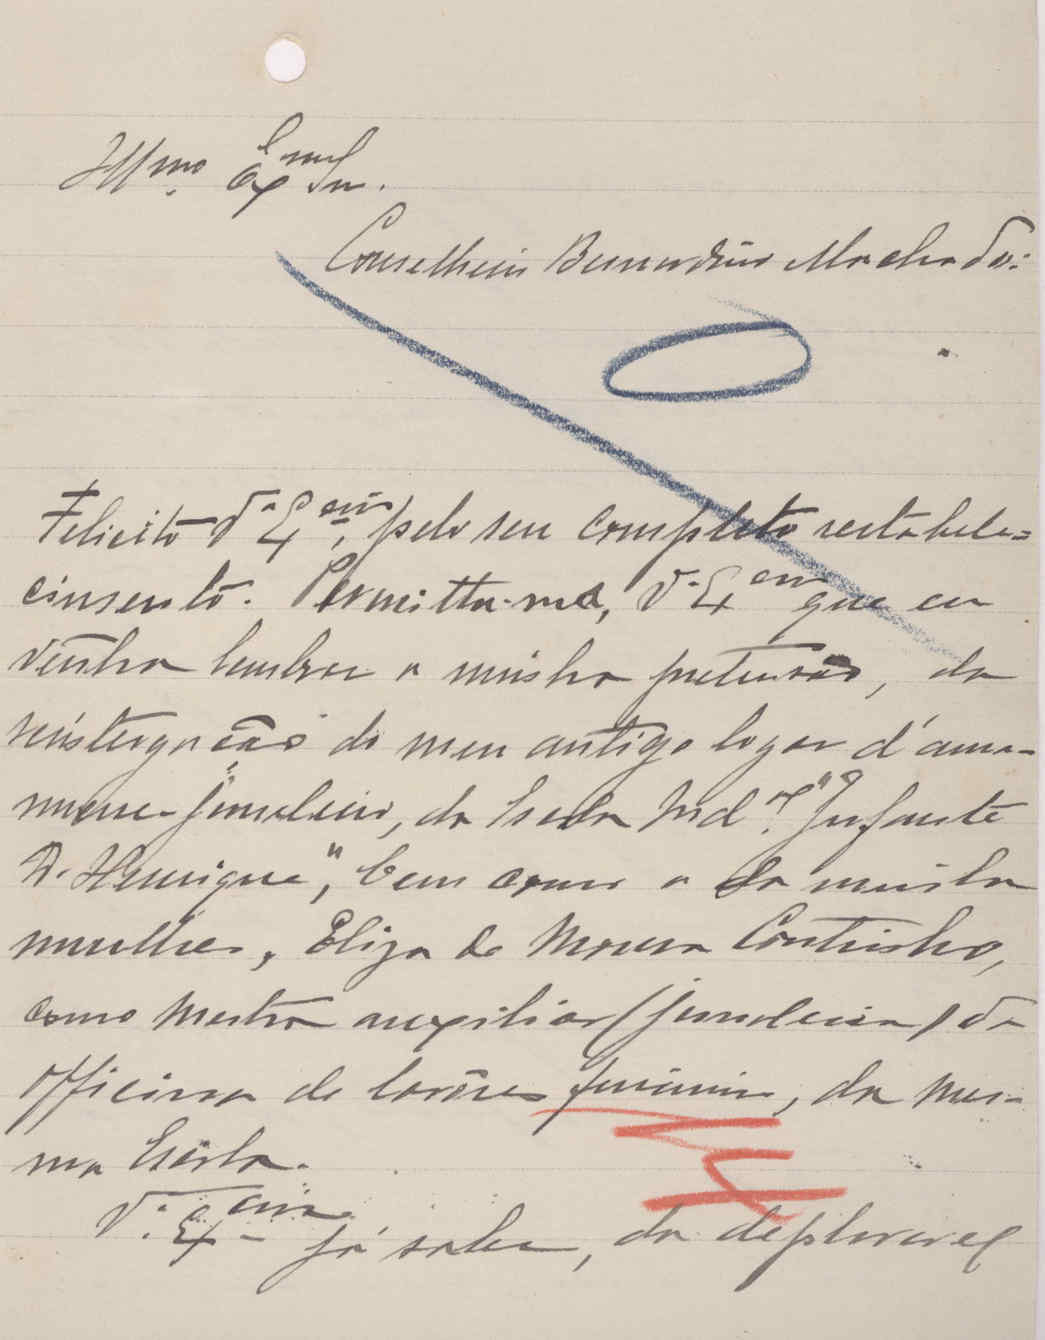 Illmo. Exmo Sr.
Conselheiro Bernardino Machado:
Felicito V.ª Ex.cia, pelo seu completo restabele=
cimento. Permitta-me, V.ª Ex.cia que eu
venha lembrar a minha pretensão, da
reintegração do meu antigo logar d'ama-
nuense-jornaleiro, da Escola Ind.al "Infante
D. Henrique", bem como a da minha
mulher, Eliza de Moura Coutinho,
como mestra auxiliar (jornaleira) da
officina de lavôres femininos, da mes-
ma Escola.
V.ª Ex.cia já sabe, da deploravel